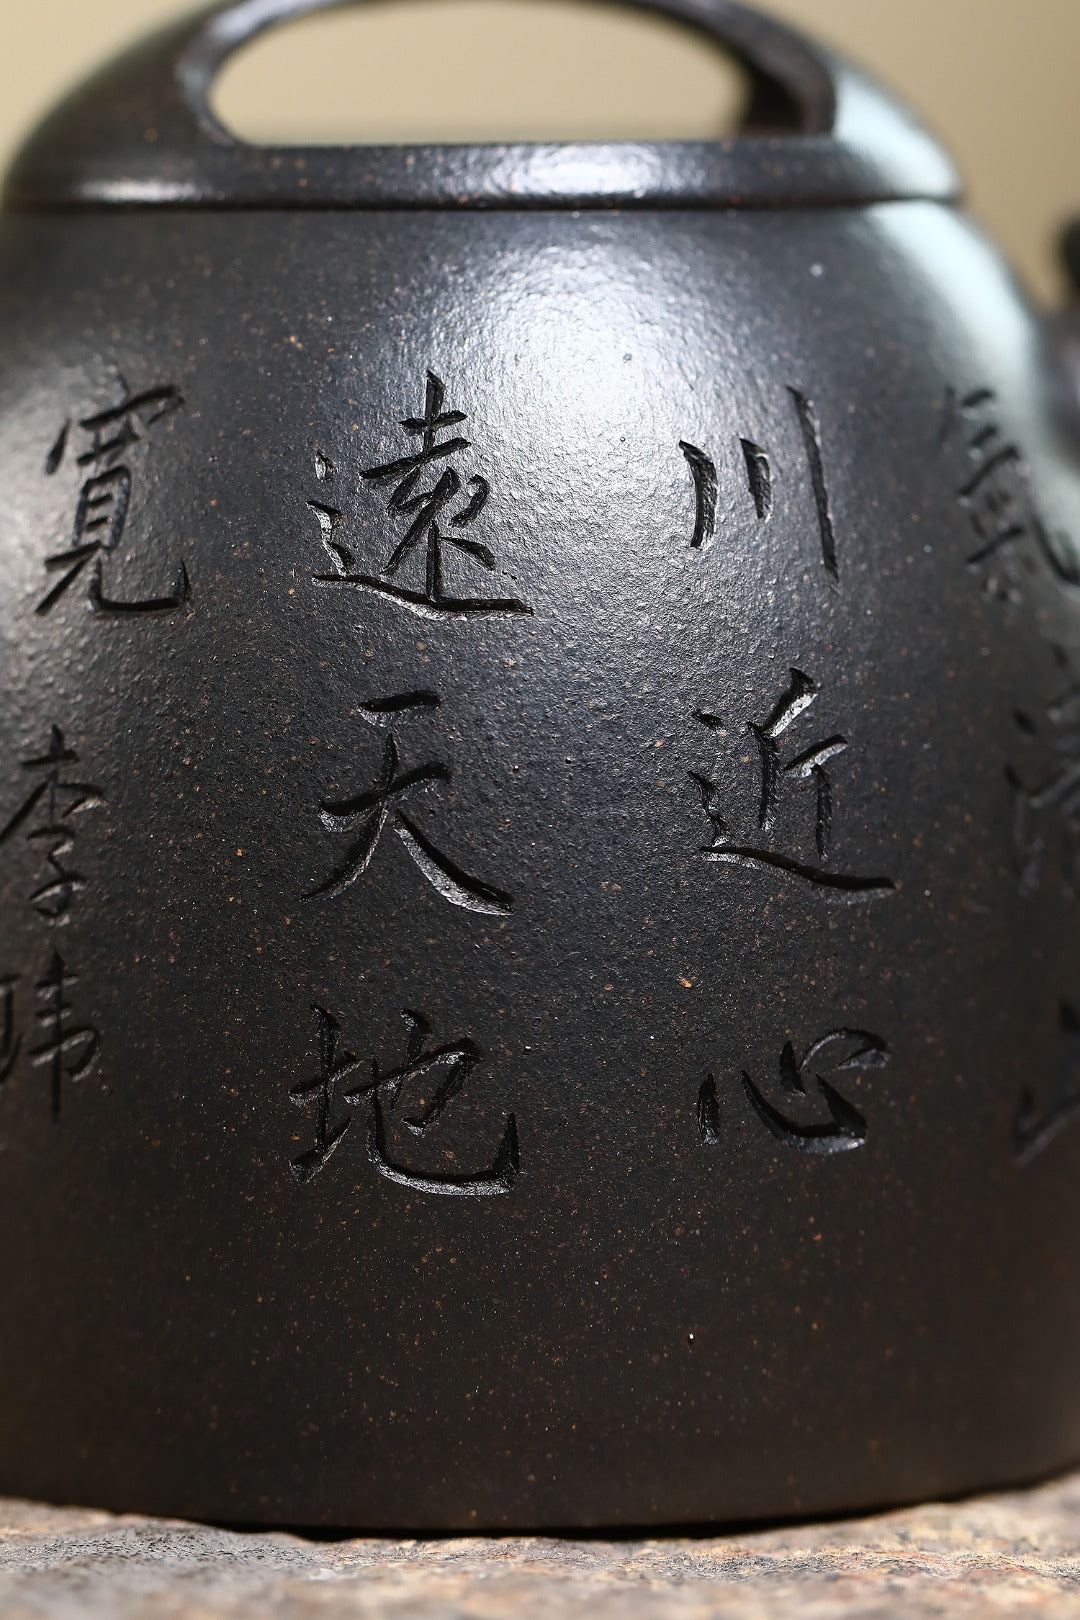 氣清山
川近心
遠天地
寬
李玮